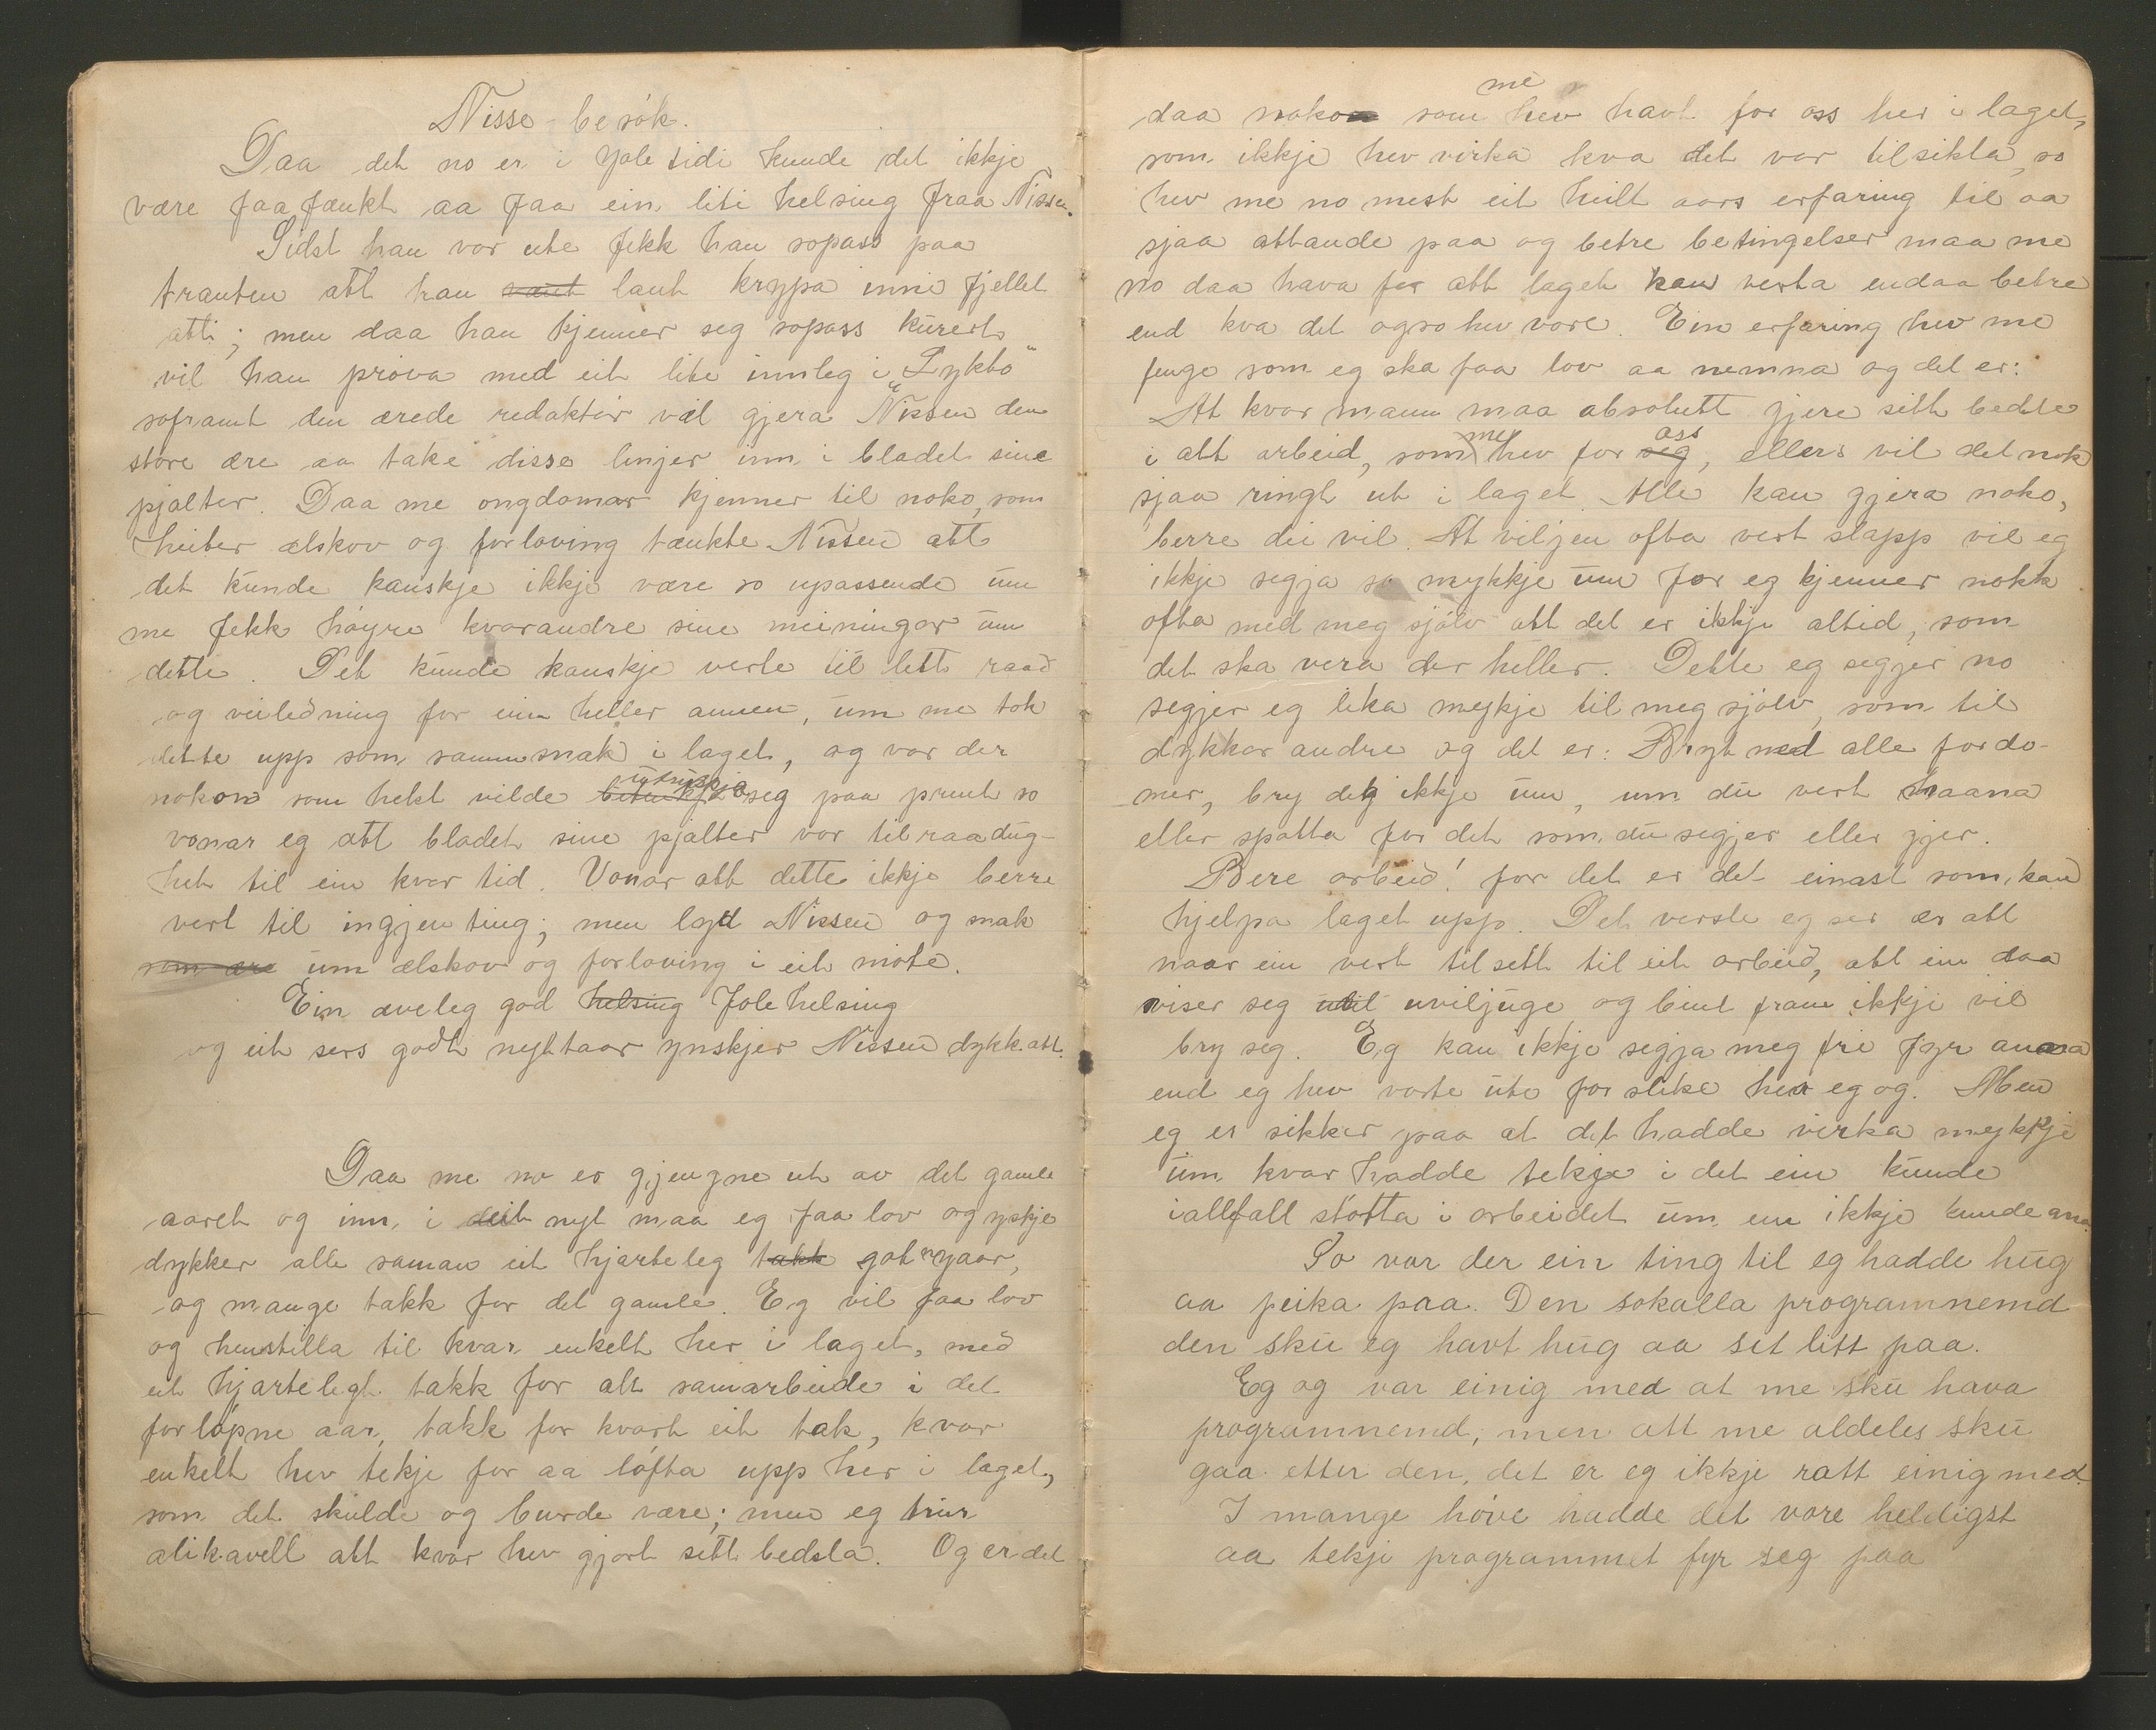 Nisse-besök.
Daa det no er i Joletidi kunde det ikkje
være faafænkt aa faa ein liti helsing fraa Nissen.
Sidst han var ute fekk han sopass paa
tranten att han laut krypa inni fjellet
atti; men daa han kjenner seg sopass kurert
vil han pröva med eit lite innleg i "Lykto"
soframt den ærede redaktör vil gjera Nissen den
store ære aa take disse linjer inn i bladet sine
pjalter. Daa me ongdomar kjenner til noko, som
heiter ælskov og forloving tænkte Nissen att
det kunde kanskje ikkje være so upassende um
me fekk höyre kvarandre sine meiningar um
dette. Det kunde kanskje verte til lett raad
og veiledning for ein heller annen, um me tok
dette upp som samnsnak i laget, og var der
nokon som helst vilde uttrykkja seg paa prent so
vonar eg att bladet sine pjalter var til raadug-
het til ein kvar tid. Vonar att dette ikkje berre
vert til ingjen ting; men lyd Nissen og snak
um ælskov og forloving i eit möte.
Ein æveleg god Jolehelsing
og eit sers godt nyttaar ynskjer Nissen dykk att.
Daa me no er gjengne ut av det gamle
aaret og inn i eit nyt maa eg faa lov og yskje
dykker alle saman eit hjarteleg got nyaar,
og mange takk for det gamle. Eg vil faa lov
og henstilla til kvar enkelt her i laget, med
eit hjartelegt takk for alt samarbeide i det
forlöpne aar, takk for kvart eit tak, kvar
enkelt hev tekje for aa löfta upp her i laget,
som det skulde og burde være; men eg trur
alikavell att kvar hev gjort sitt bedsta. Og er det
daa noko som me hev havt for oss her i laget,
som ikkje hev virka kva det var tilsikta, so
hev me no mest eit heilt aars erfaring til aa
sjaa attande paa og betre betingelser maa me
no daa hava for att laget kan verta endaa betre
end kva det ogso hev vore. Ein erfaring hev me
fenge som eg ska faa lov aa nemna og det er:
At kvar mann maa absolutt gjere sitt bedste
i alt arbeid, som me hev for oss, ellers vil det nok
sjaa ringt ut i laget. Alle kan gjera noko,
berre dei vil. At viljen ofta vert slapp vil eg
ikkje segja so mykkje um for eg kjenner nokk
ofta med meg sjölv att det er ikkje altid, som
det ska vera der heller. Dette eg segjer no
segjer eg lika mykje til meg sjölv, som til
dykkar andre og det er: Bryt ned alle fordo-
mer, bry deg ikkje um, um du vert haana
eller spotta for det som du segjer eller gjer.
Bere arbeid! for det er det einast som kan
hjelpa laget upp. Det verste eg ser er att
naar ein vert tilsett til eit arbeid, att ein daa
viser seg uviljuge og beint fram ikkje vil
bry seg. Eg kan ikkje segja meg fri fyr anna
end eg hev vorte ute for slike her eg og. Men
eg er sikker paa at det hadde virka mykkje
um kvar hadde tekje i det ein kunde
iallefall stötta i arbeidet um ein ikkje kunde ana.
So var der ein ting til eg hadde hug
aa peika paa. Den sokalla programnemd
den sku eg havt hug aa set litt paa.
Eg og var einig med at me sku hava
programnemd, men att me aldeles sku
gaa etter den, det er eg ikkje ratt einig med.
I mange höve hadde det vore heldigst
aa tekje programmet fyr seg paa